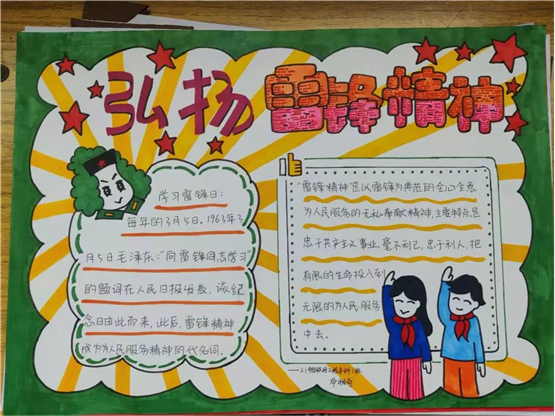 弘扬 雷锋精神
学习雷锋日:
每年的3月5日. 1963年3
月5日毛泽东:"向雷锋同志学习"
的题词在人民日报发表, 该纪
念日由此而来, 此后, 雷锋精神
成为为人民服务精神的代名词.
"雷锋精神"是以雷锋为典范的全心全意
为人民服务的无私奉献精神,主要特征是
忠于共产主义事业, 毫不利己, 忠于利人, 把
有限的生命投入到
无限的为人民服务
中去.